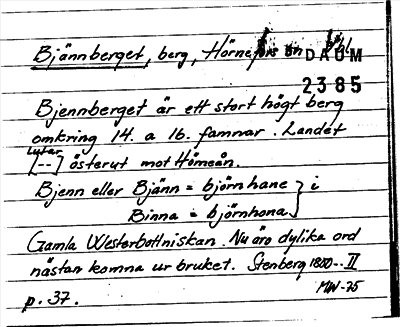 Bjännberget, berg, Hörnefors sn Vbl
DAUM
2385
Bjennberget är ett stort högt berg
omkring 14. a 16. famnar. Landet
lutar
[--] österut mot Hörneån.
Bjenn eller Bjänn = björnhane } i
Binna = björnhona
Gamla Westerbottniskan. Nu äro dylika ord
nästan komna ur bruket. Stenberg 1800-. II
p. 37.
MW-75